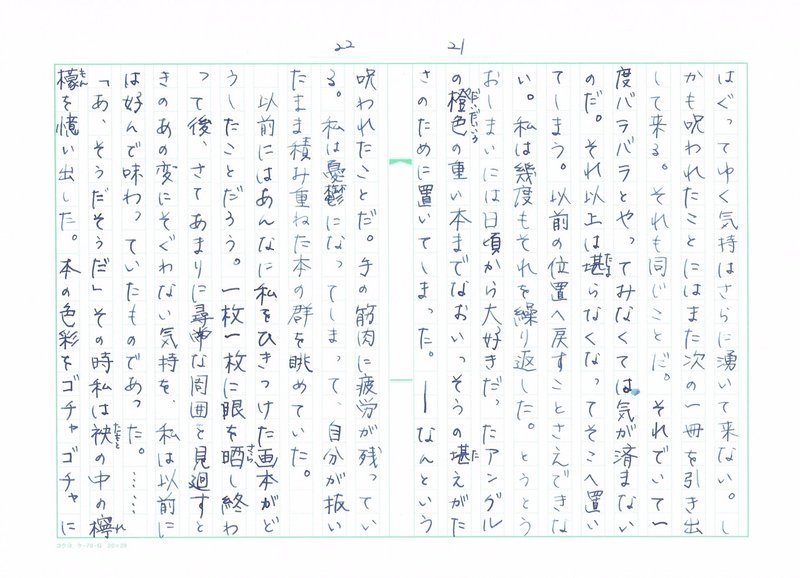 21
はぐってゆく気持はさらに湧いて来ない。し
かも呪われたことにはまた次の一冊を引き出
して来る。それも同じことだ。それでいて一
度バラバラとやってみなくては気が済まない
のだ。それ以上は堪らなくなってそこへ置い
てしまう。以前の位置へ戻すことさえできな
い。私は幾度もそれを繰り返した。とうとう
おしまいには日頃から大好きだったアングル
の橙色の重い本までなおいっそうの堪えがた
さのために置いてしまった。――なんという
22
呪われたことだ。手の筋肉に疲労が残ってい
る。私は憂鬱になってしまって、自分が抜い
たまま積み重ねた本の群を眺めていた。
以前にはあんなに私をひきつけた画本がど
うしたことだろう。一枚一枚に眼を晒し終わ
って後、さてあまりに尋常な周囲を見廻すと
きのあの変にそぐわない気持を、私は以前に
は好んで味わっていたものであった。……
「あ、そうだそうだ」その時私は袂の中の檸
檬を憶い出した。本の色彩をゴチャゴチャに
コクヨ ケ-70-N 20×20